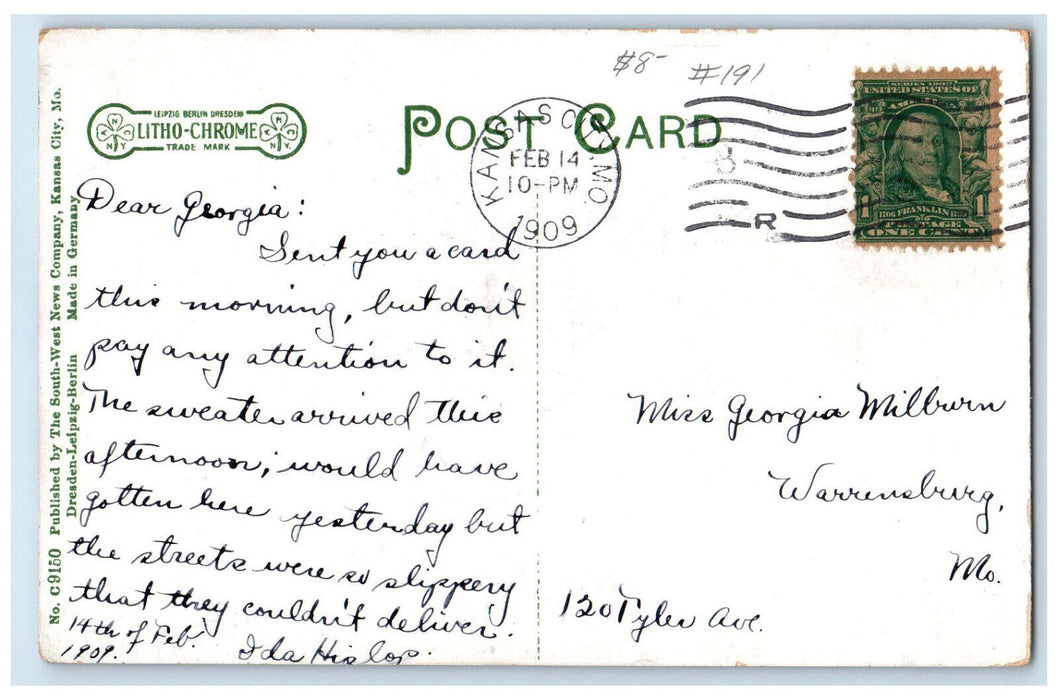 $8- #191
LEIPZIG BERLIN DRESDEN
LITHO-CHROME
TRADE MARK
POST CARD
KANSAS CITY, MO.
FEB 14
10-PM
1909
R
SERIES 1902
UNITED STATES OF
AMERICA
1706 FRANKLIN 1790
POSTAGE
1 ONE CENT 1
No. C9150 Published by The South-West News Company, Kansas City, Mo.
Dresden-Leipzig-Berlin Made in Germany
Dear Georgia:
Sent you a card
this morning, but don't
pay any attention to it.
The sweater arrived this
afternoon; would have
gotten here yesterday but
the streets were so slippery
that they couldn't deliver.
14th of Feb.
1909.
Ida Hislop.
Miss Georgia Milburn
Warrensburg,
Mo.
120 Tyler Ave.